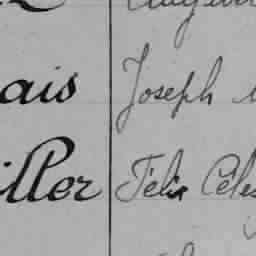 ais Joseph
iller Félix Céles